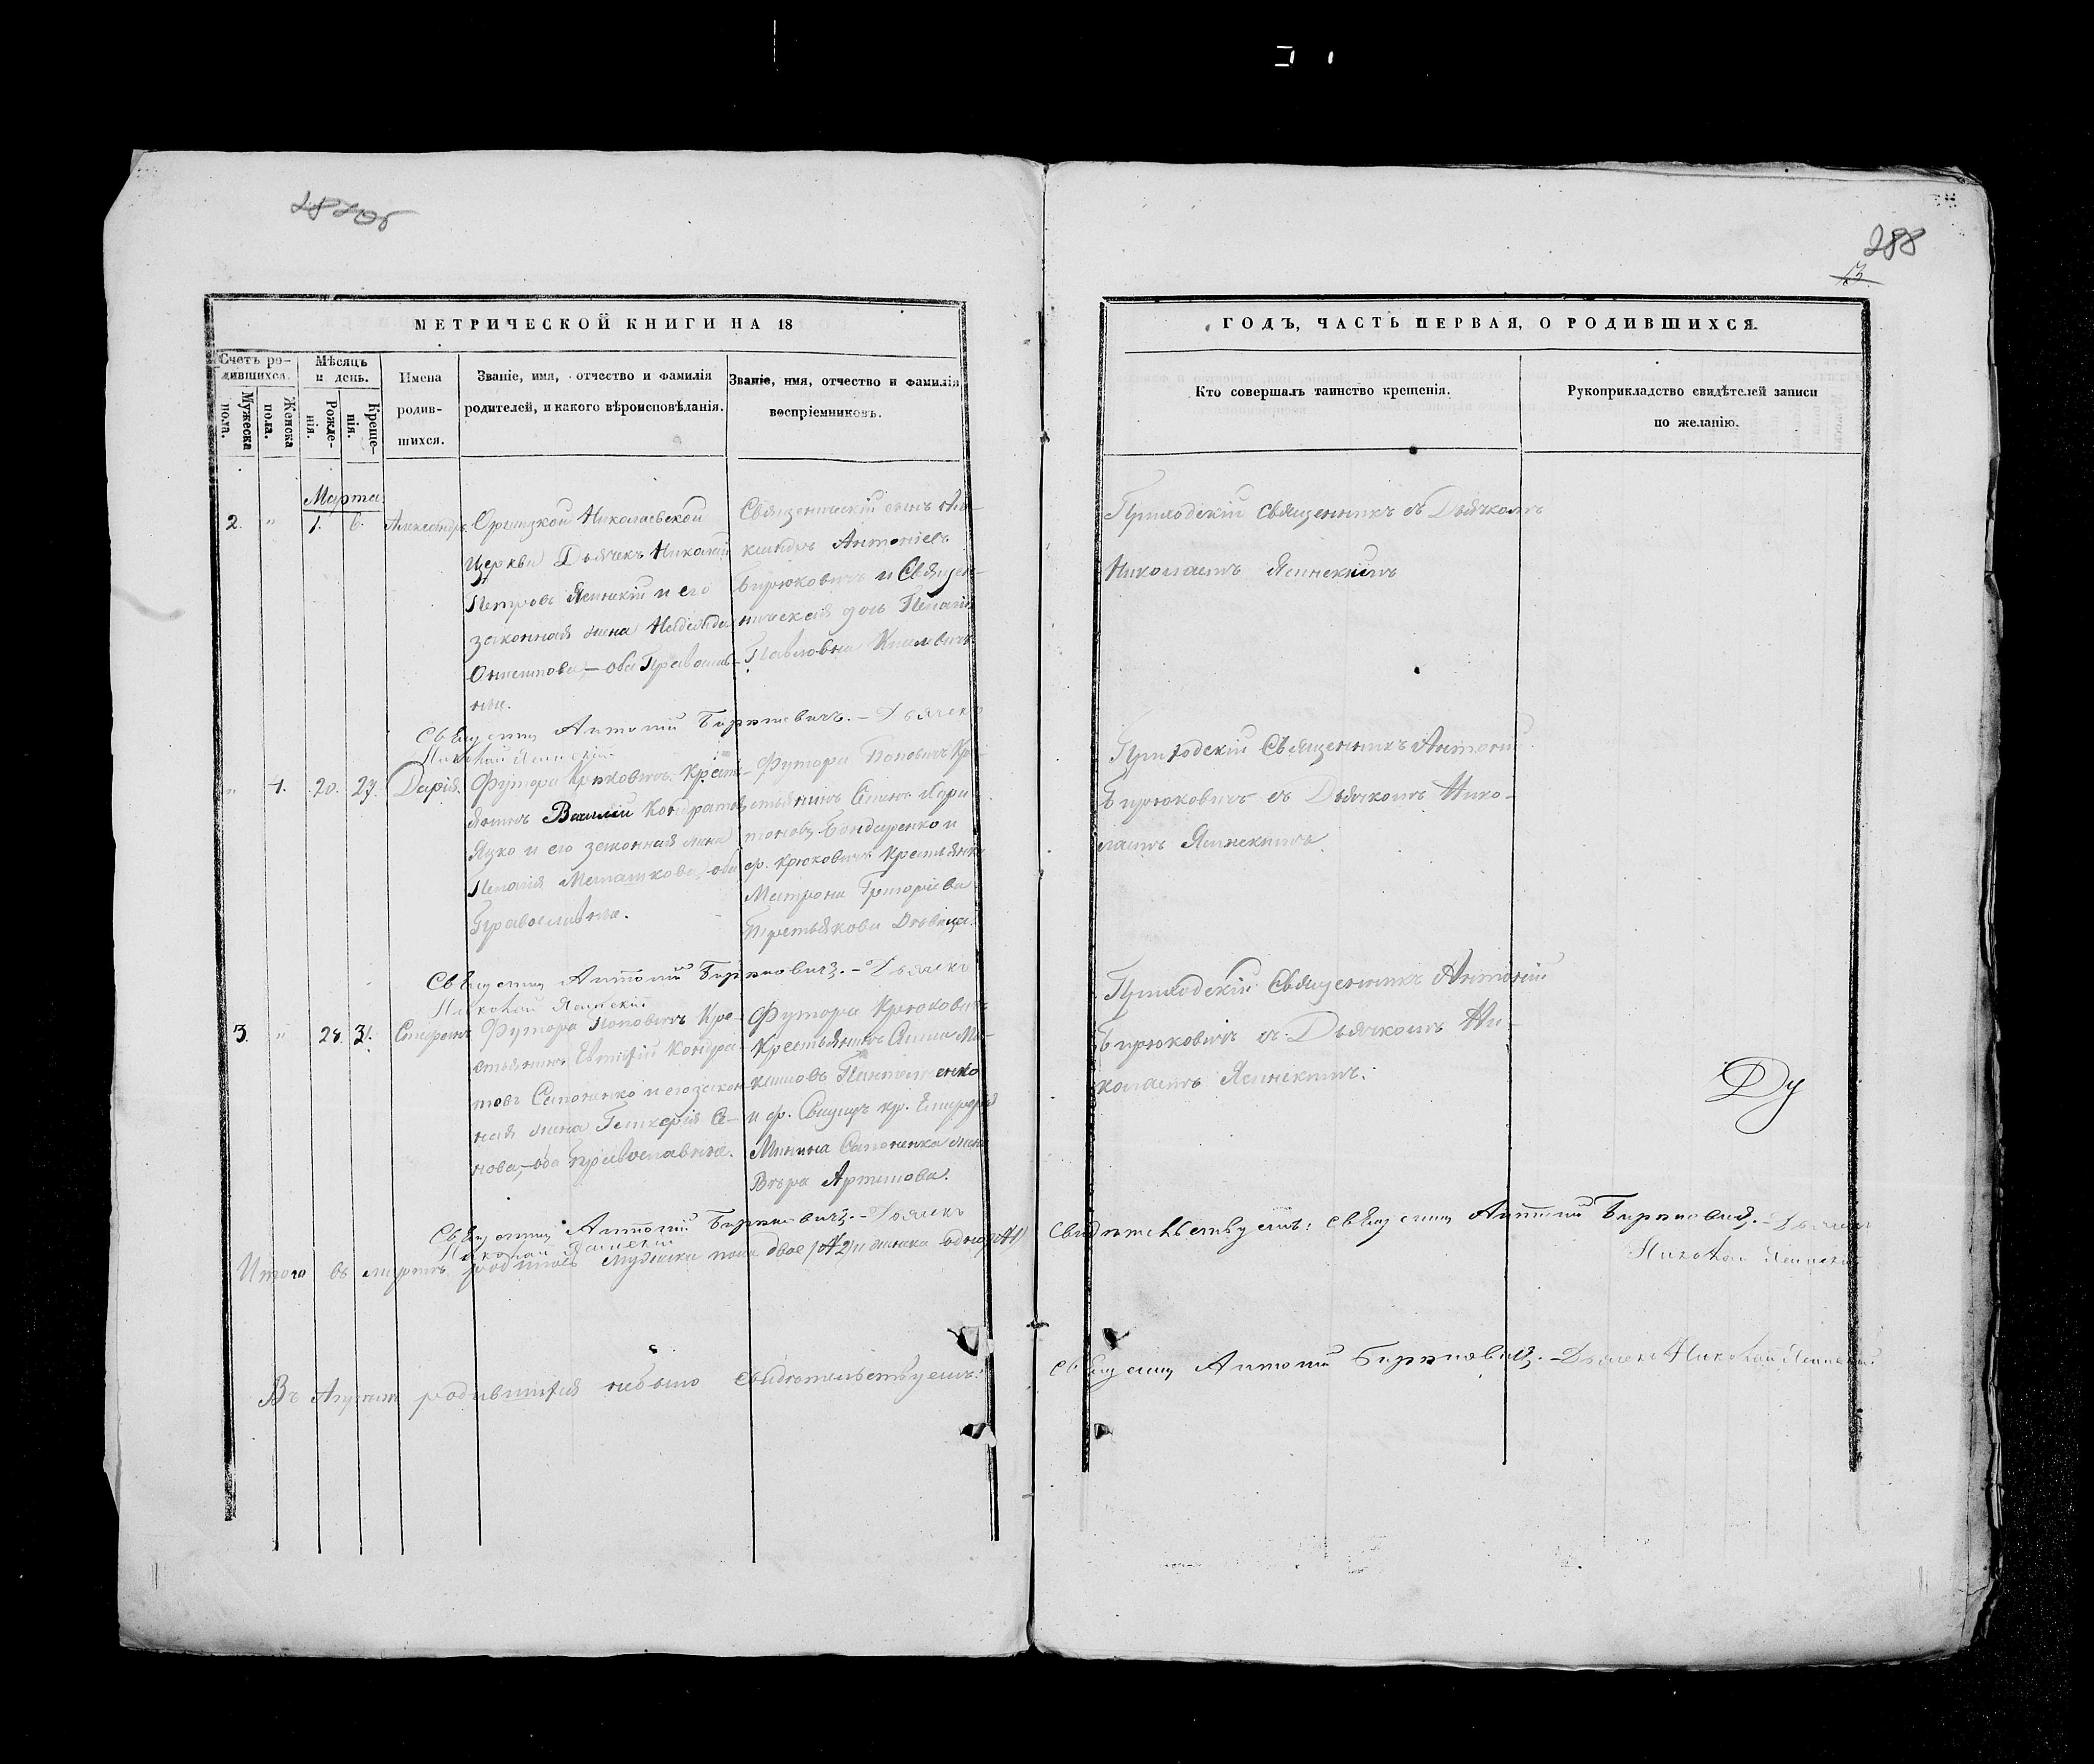 288
13
МЕТРИЧЕСКОЙ КНИГИ НА 18
ГОДЪ, ЧАСТЬ ПЕРВАЯ, О РОДИВШИХСЯ.
Счетъ ро-
дившихся.
Мужеска
пола.
Женска
пола.
Мѣсяцъ
и день.
Рожде-
нія.
Креще-
нія.
Имена
родив-
шихся.
Званіе, имя, отчество и фамилія
родителей, и какого вѣроисповѣданія.
Званіе, имя, отчество и фамилія
воспріемниковъ.
Кто совершалъ таинство крещенія.
Рукоприкладство свидѣтелей записи
по желанію.
Марта
2. " 1. 6. Александръ
Николаевской
Церкви Дьячекъ Николай
Петровъ Ясинскій и его
законная жена Надежда
оба Православ-
ные.
Священническій сынъ Але-
ксандръ Антоніевъ
Бирюковичъ и Священ-
ническая дочь Пелагія
Павловна
Приходскій Священникъ съ Дьячкомъ
Николаемъ Ясинскимъ
Священникъ Антоній Бирюковичъ. - Дьячекъ
Николай Ясинскій
" 1. 20. 27. Дарія.
Футора Крюковичъ Кресть-
янинъ Василій Кондратовъ
Яцко и его законная жена
Пелагія оба
Православные.
Футора Поповичъ Кре-
стьянинъ Семенъ Хари-
тоновъ Бондаренко и
ф. Крюковичъ Крестьянка
Матрона Григоріева
Третьякова Дѣвица.
Приходскій Священникъ Антоній
Бирюковичъ съ Дьячкомъ Нико-
лаемъ Ясинскимъ
Священникъ Антоній Бирюковичъ. - Дьячекъ
Николай Ясинскій
3. " 28. 31. Стефанъ
Футора Поповичъ Кре-
стьянинъ Евтифій Кондра-
товъ Сапоненко и его закон-
ная жена Гликерія Се-
нова, оба Православные.
Футора Крюковичъ
Крестьянинъ
Пантелеенко
и ф. кр.
Минина Сапоненка жена
Вѣра Артемова.
Приходскій Священникъ Антоній
Бирюковичъ съ Дьячкомъ Ни-
колаемъ Ясинскимъ.
Священникъ Антоній Бирюковичъ. - Дьячекъ
Николай Ясинскій
Итого въ мартѣ родилось мужеска пола двое /№2/ и женска одна /№1/
Свидѣтельствуемъ: Священникъ Антоній Бирюковичъ. - Дьячекъ
Николай Ясинскій
Въ Апрѣлѣ родившихся небыло Свидѣтельствуемъ:
Священникъ Антоній Бирюковичъ. - Дьячекъ Николай Ясинскій